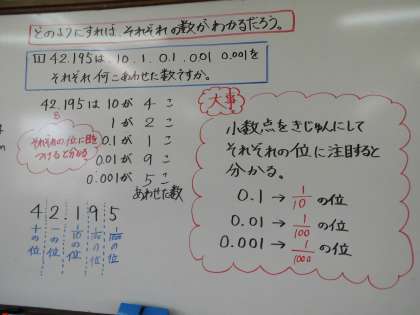 どのようにすれば、それぞれの数がわかるだろう。
1 42.195は、10、1、0.1、0.01 0.001を
それぞれ何こあわせた数ですか。
42.195は 10が 4こ
1が 2こ
0.1が 1こ
0.01が 9こ
0.001が 5こ
あわせた数
それぞれの位に目を
つけると分かる
42.195
十の位
一の位
1/10の位
1/100の位
1/1000の位
大事
小数点をきじゅんにして
それぞれの位に注目すると
分かる。
0.1→1/10の位
0.01→1/100の位
0.001→1/1000の位